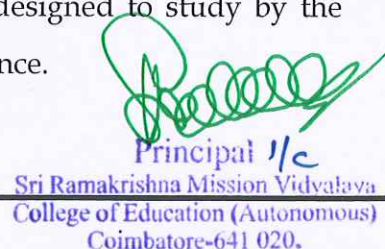 designed to study by the
nce.
Principal I/c
Sri Ramakrishna Mission Vidyalaya
College of Education (Autonomous)
Coimbatore-641 020.